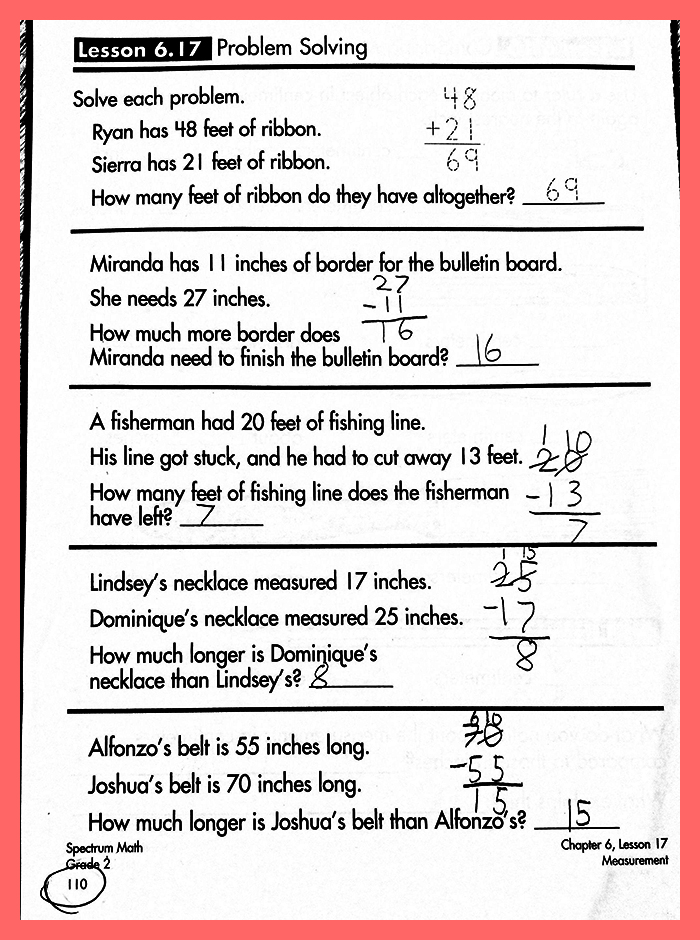 Lesson 6.17 Problem Solving
Solve each problem.
48
Ryan has 48 feet of ribbon.
+21
Sierra has 21 feet of ribbon.
69
How many feet of ribbon do they have altogether? 69
Miranda has 11 inches of border for the bulletin board.
27
She needs 27 inches.
-11
How much more border does
16
Miranda need to finish the bulletin board? 16
A fisherman had 20 feet of fishing line.
1 10
His line got stuck, and he had to cut away 13 feet.
20
How many feet of fishing line does the fisherman
-13
have left? 7
7
1 15
25
Lindsey's necklace measured 17 inches.
Dominique's necklace measured 25 inches.
-17
How much longer is Dominique's
8
necklace than Lindsey's? 8
6 10
70
Alfonzo's belt is 55 inches long.
-55
Joshua's belt is 70 inches long.
15
How much longer is Joshua's belt than Alfonzo's? 15
Spectrum Math
Grade 2
110
Chapter 6, Lesson 17
Measurement